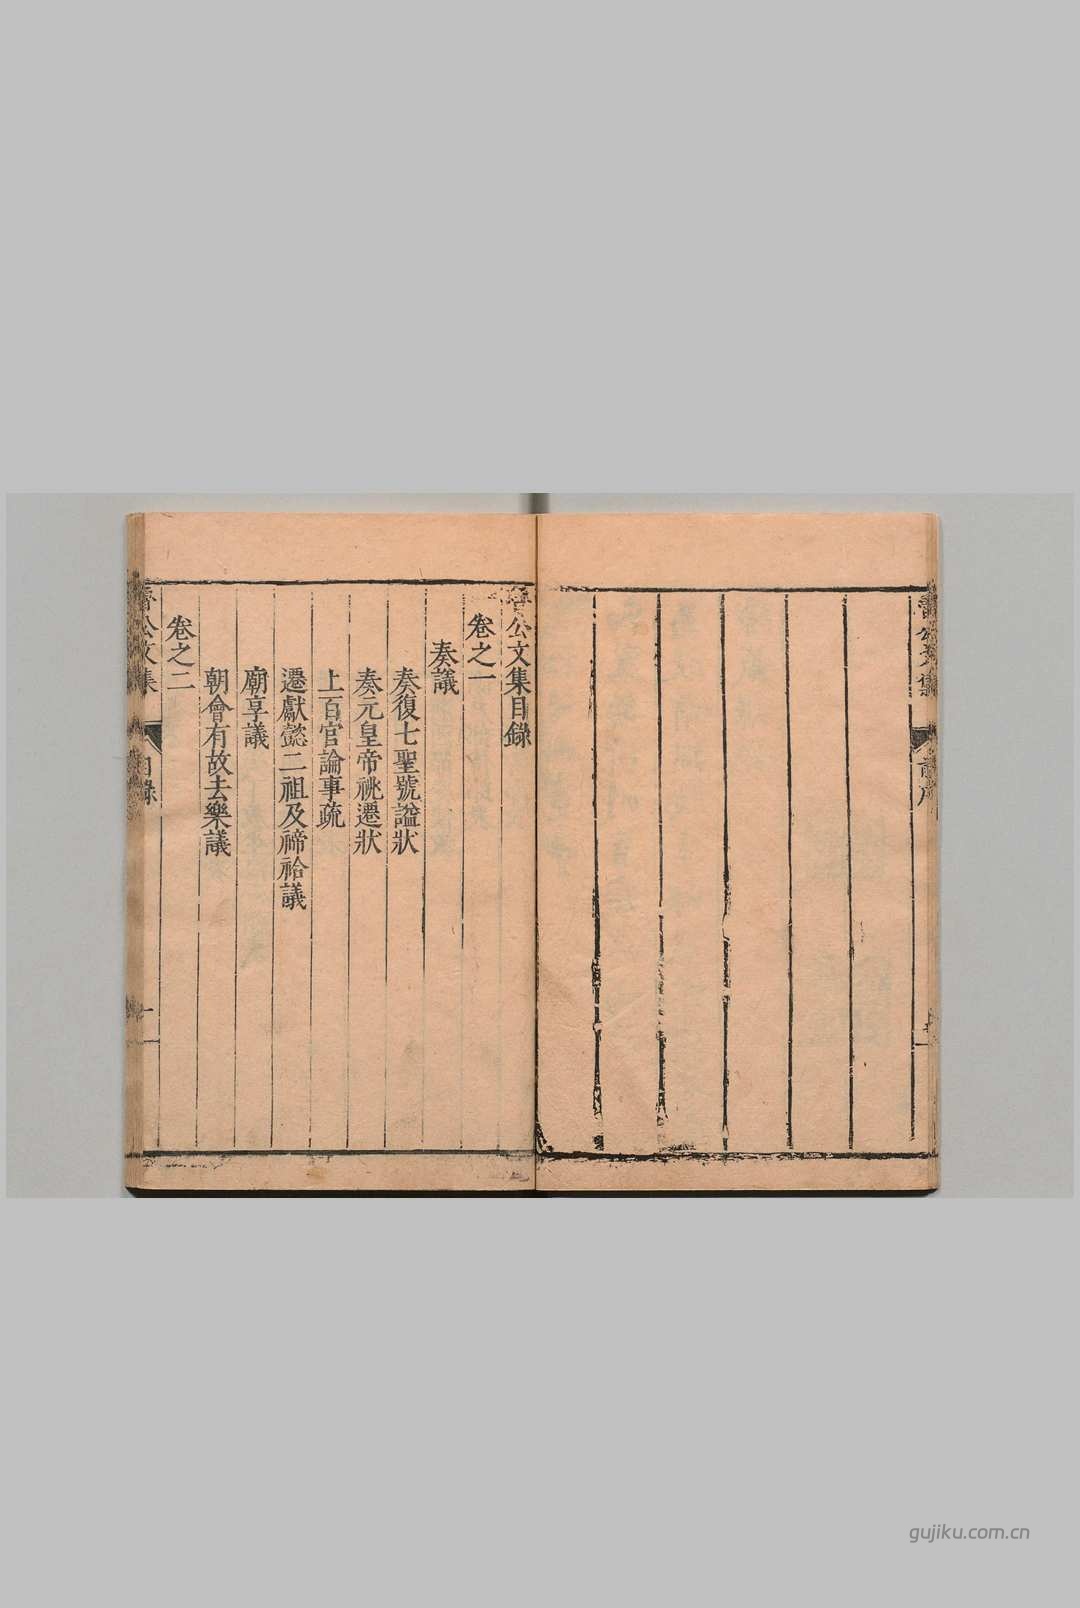 魯公文集
前序
魯公文集目録
卷之一
奏議
奏復七聖號諡狀
奏元皇帝祧遷狀
上百官論事疏
遷獻懿二祖及禘祫議
廟享議
朝會有故去樂議
卷之二
魯公文集
目録
一
gujiku.com.cn